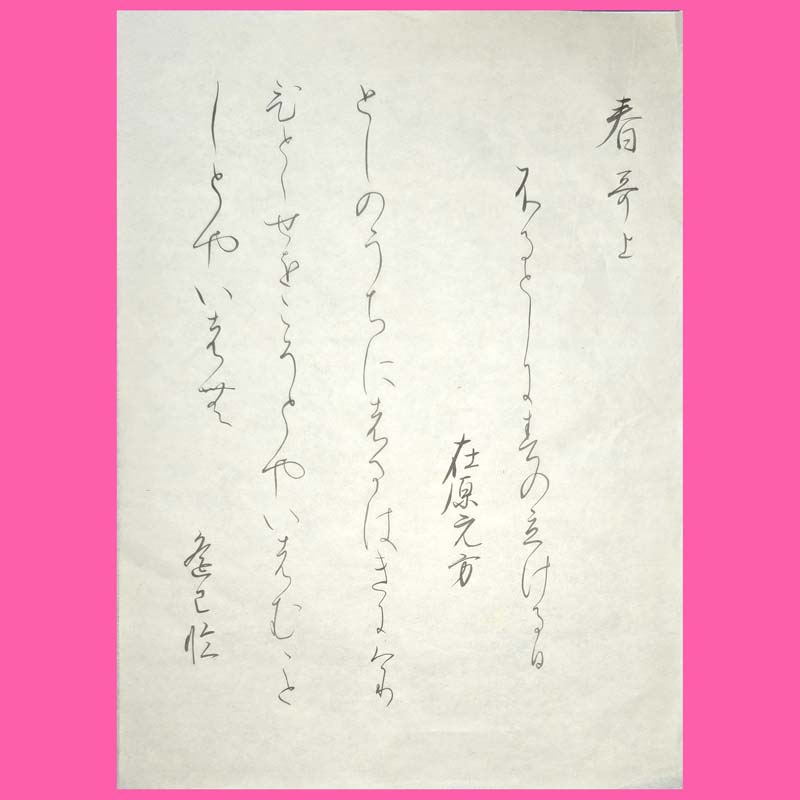 春哥上
不るとしに春の立ける日
在原元方
としのうちにはるはきにけり
ひとゝせをこそとやいはむこと
しとやいはむ
臨